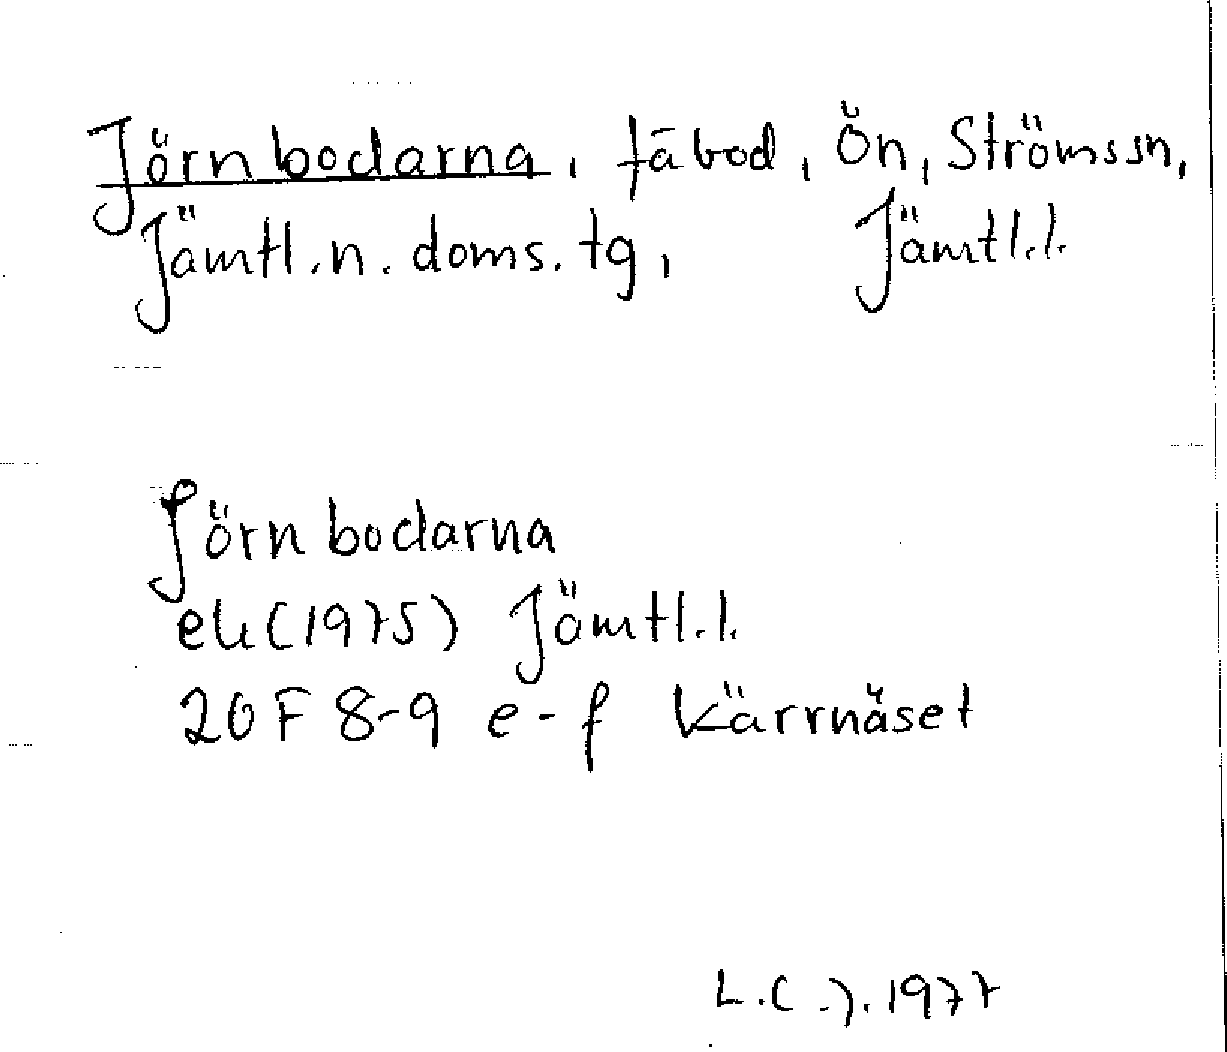 Jörnbodarna, fäbod, Ön, Ströms sn,
Jämtl. n. doms. tg, Jämtl. l.
Jörnbodarna
ek (1975) Jämtl. l.
20 F 8-9 e-f Kärrnäset
1977